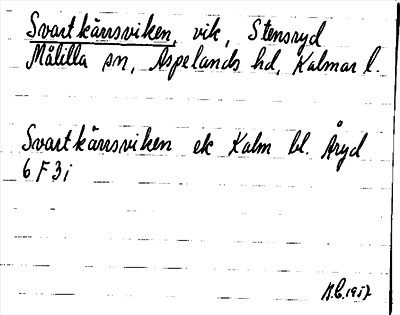 Svartkärrsviken, vik, Stensryd
Målilla sn, Aspelands hd, Kalmar l.
Svartkärrsviken ek Kalm bl. Åryd
6 F 3 i